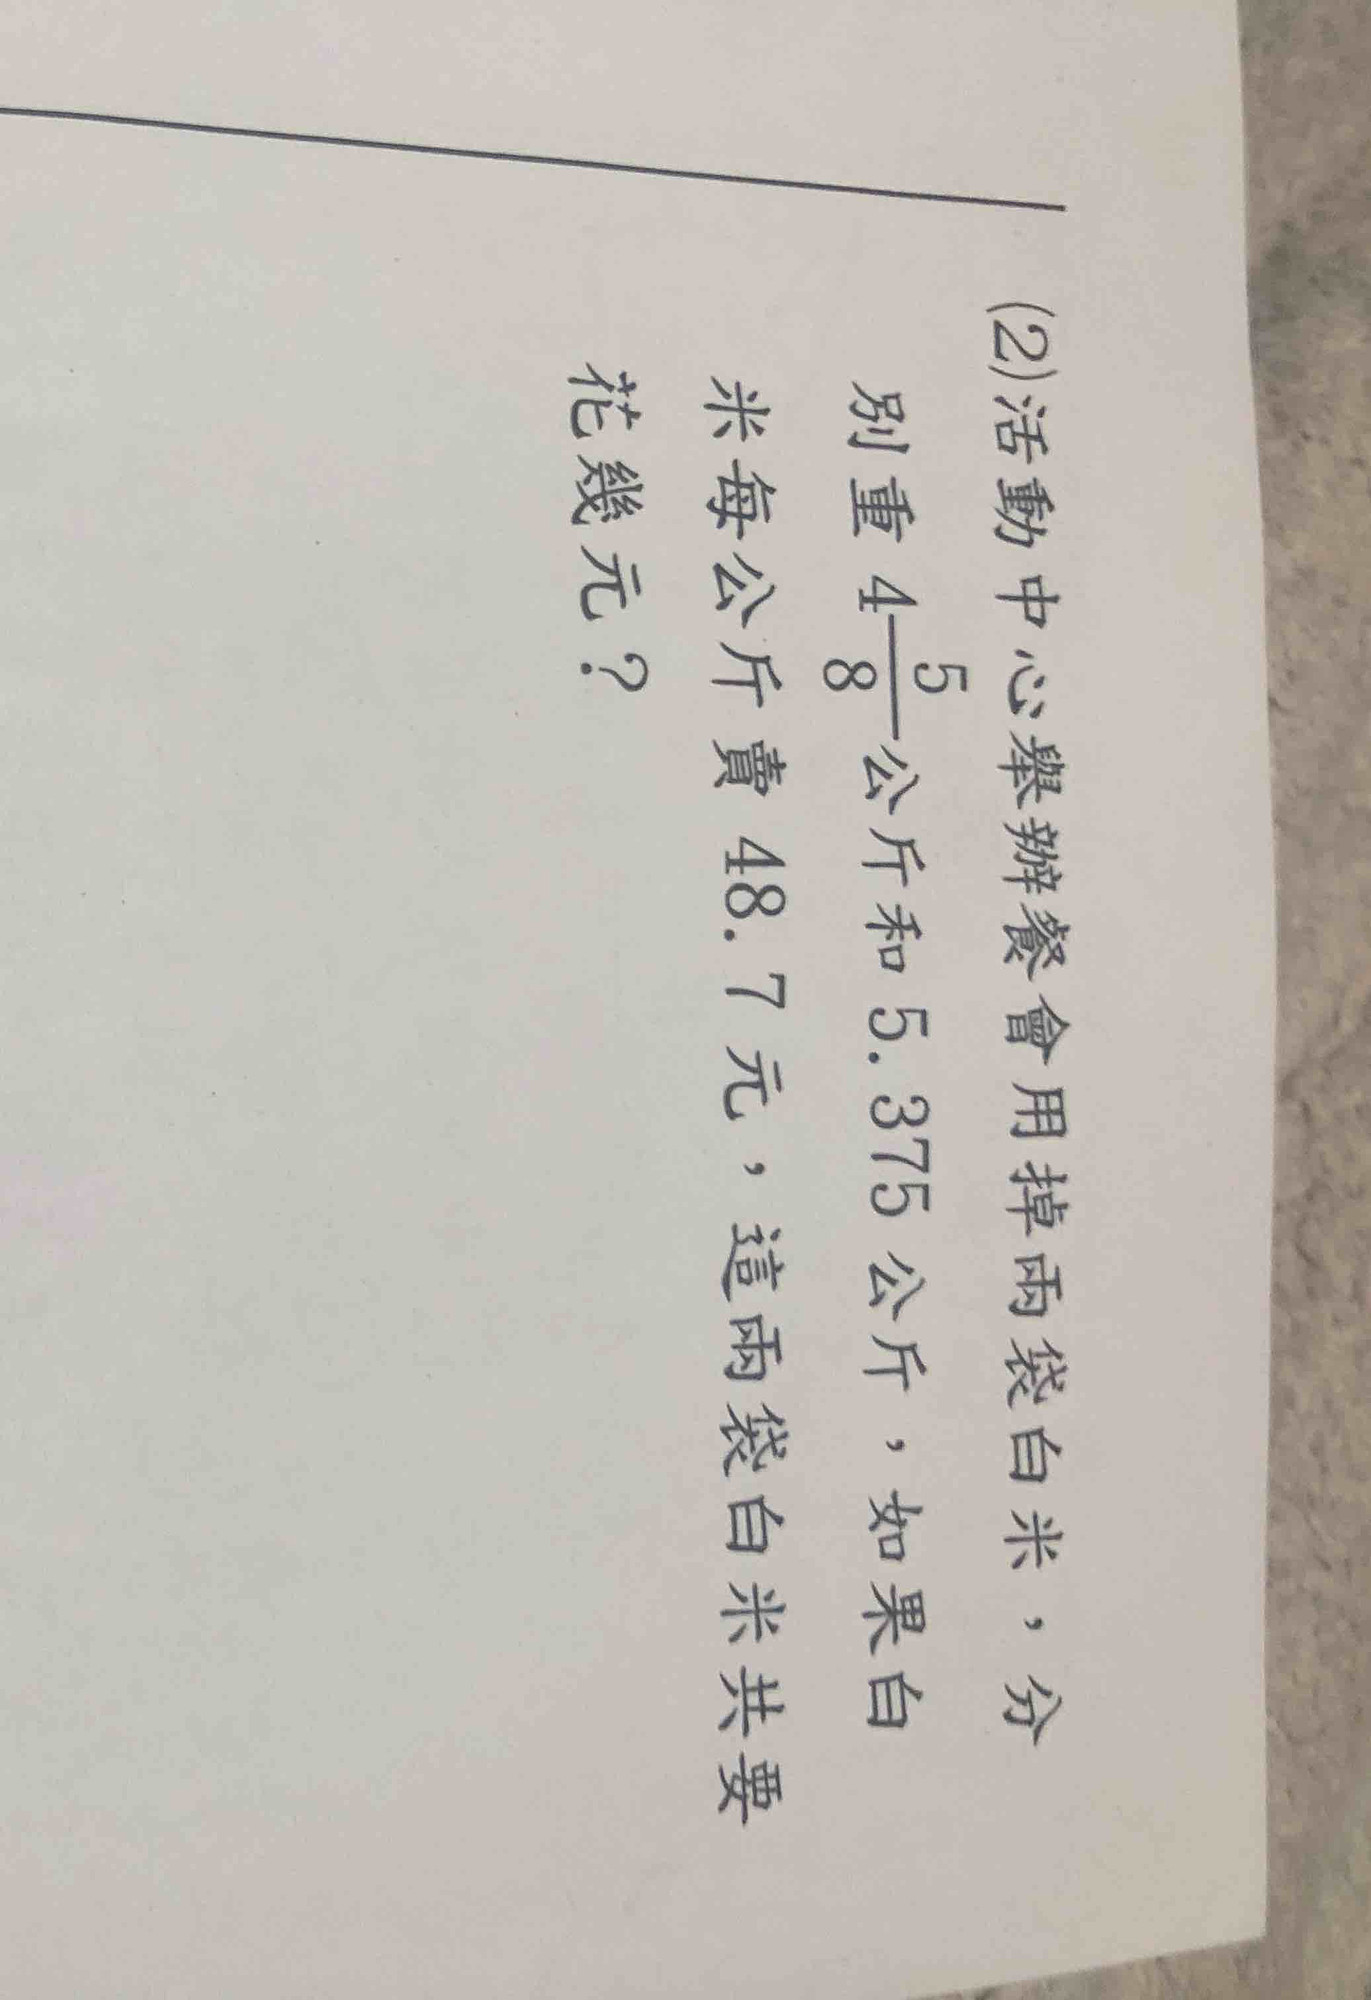 (2)活動中心舉辦餐會用掉兩袋白米，分
別重 4 5/8 公斤和 5.375 公斤，如果白
米每公斤賣 48.7 元，這兩袋白米共要
花幾元？